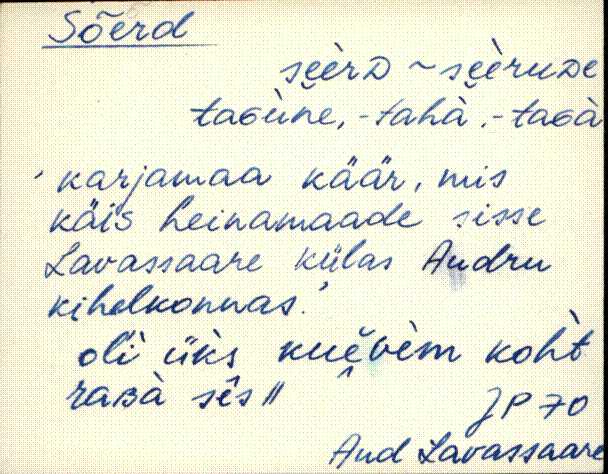 Sõerd
sèèrᴅ ~ sèèruᴅe
taɢùne, -tahà, -taɢà
'karjamaa käär, mis
käis heinamaade sisse
Lavassaare külas Audru
kihelkonnas.'
oli üks kuèvèm koht
raʙà sès //
JP 70
Aud Lavassaare